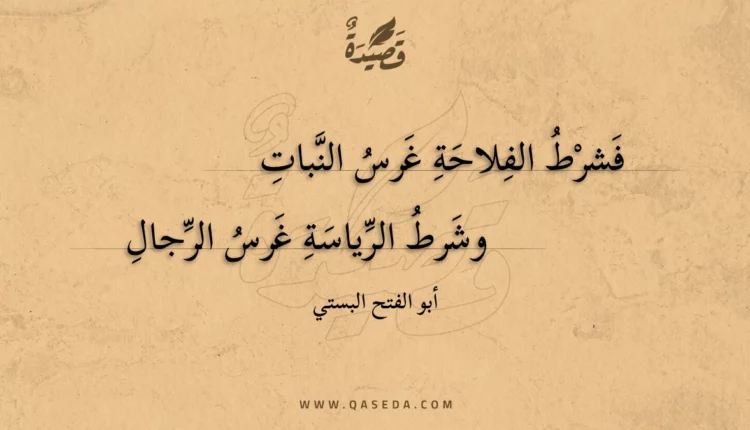 قَصِيدَةٌ
فَشرْطُ الفِلاحَةِ غَرسُ النَّباتِ
وشَرطُ الرِّياسَةِ غَرسُ الرِّجالِ
أبو الفتح البستي
WWW.QASEDA.COM